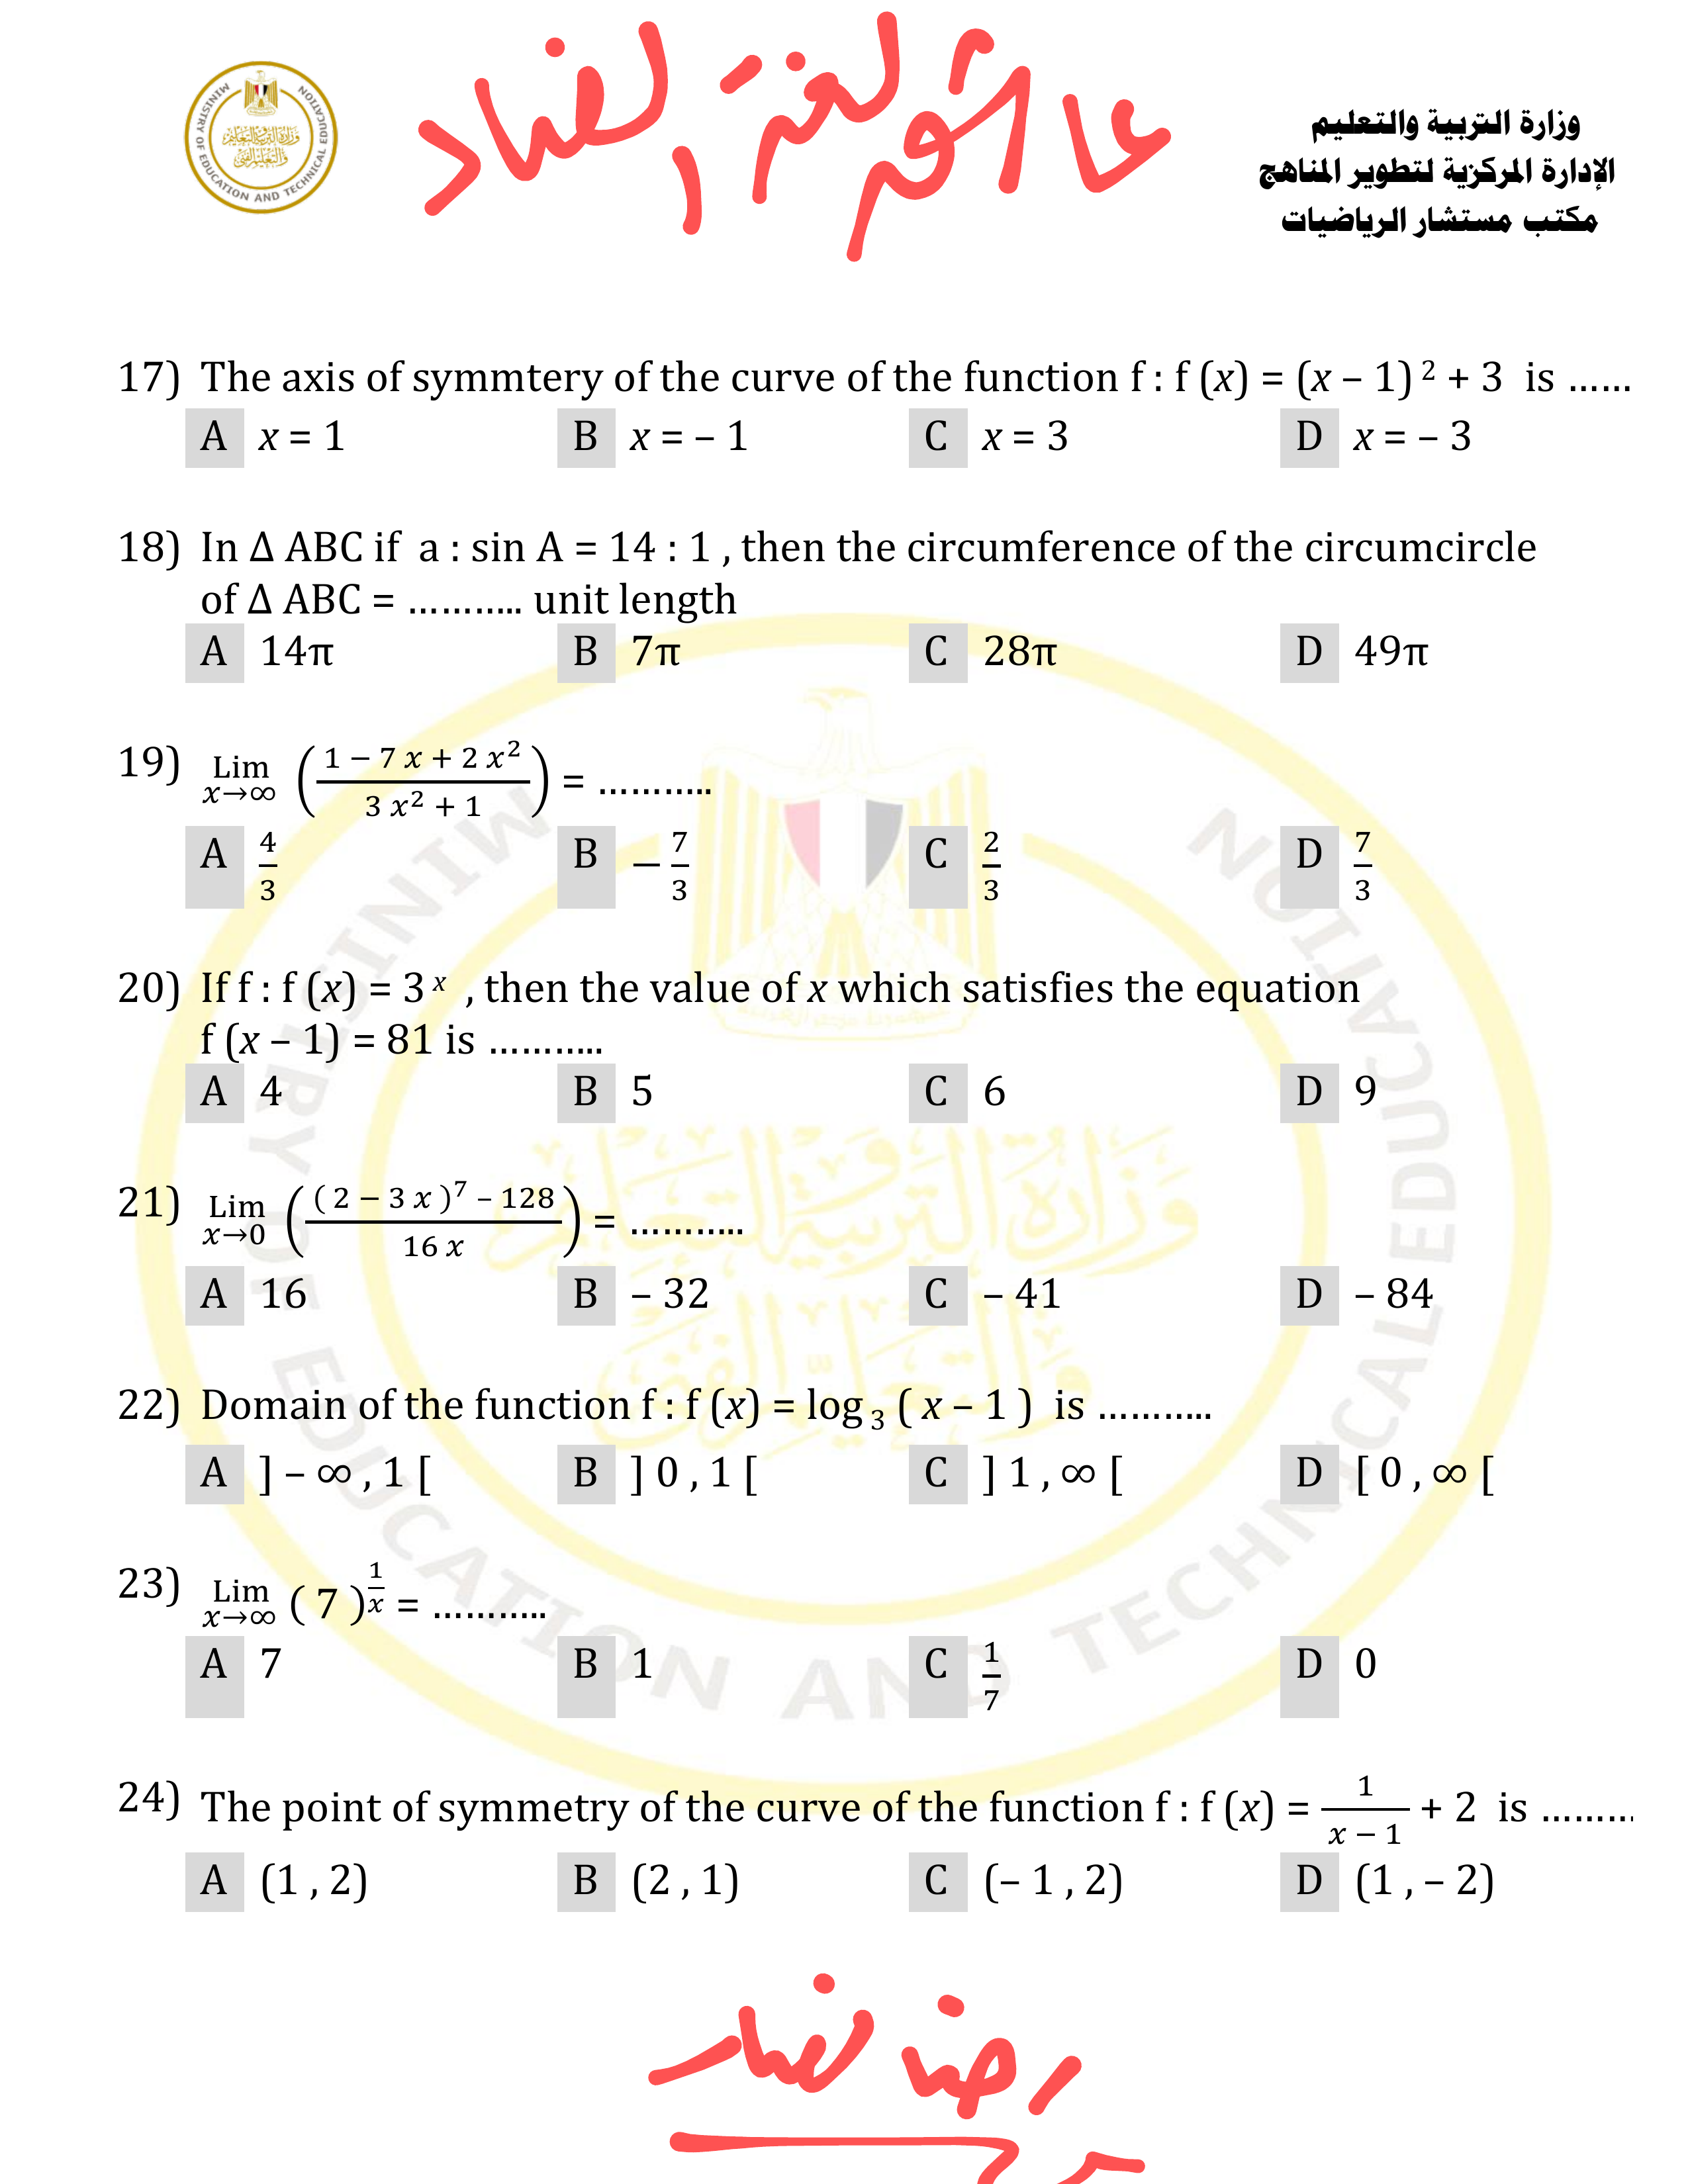 عاشقة لغة الضاد
وزارة التربية والتعليم
الإدارة المركزية لتطوير المناهج
مكتب مستشار الرياضيات
MINISTRY OF EDUCATION AND TECHNICAL EDUCATION
وزارة التربية والتعليم
والتعليم الفنى
17) The axis of symmtery of the curve of the function f : f (x) = (x – 1)² + 3 is ……
A x = 1 B x = – 1 C x = 3 D x = – 3
18) In Δ ABC if a : sin A = 14 : 1 , then the circumference of the circumcircle
of Δ ABC = ……….. unit length
A 14π B 7π C 28π D 49π
19) Lim x→∞ ((1 − 7 x + 2 x²)/(3 x² + 1)) = ………..
A 4/3 B −7/3 C 2/3 D 7/3
20) If f : f (x) = 3ˣ , then the value of x which satisfies the equation
f (x – 1) = 81 is ………..
A 4 B 5 C 6 D 9
21) Lim x→0 ((( 2 − 3 x )⁷ – 128)/(16 x)) = ………..
A 16 B – 32 C – 41 D – 84
22) Domain of the function f : f (x) = log₃ ( x – 1 ) is ………..
A ] – ∞ , 1 [ B ] 0 , 1 [ C ] 1 , ∞ [ D [ 0 , ∞ [
23) Lim x→∞ ( 7 )^(1/x) = ………..
A 7 B 1 C 1/7 D 0
24) The point of symmetry of the curve of the function f : f (x) = 1/(x − 1) + 2 is ………
A (1 , 2) B (2 , 1) C (– 1 , 2) D (1 , – 2)